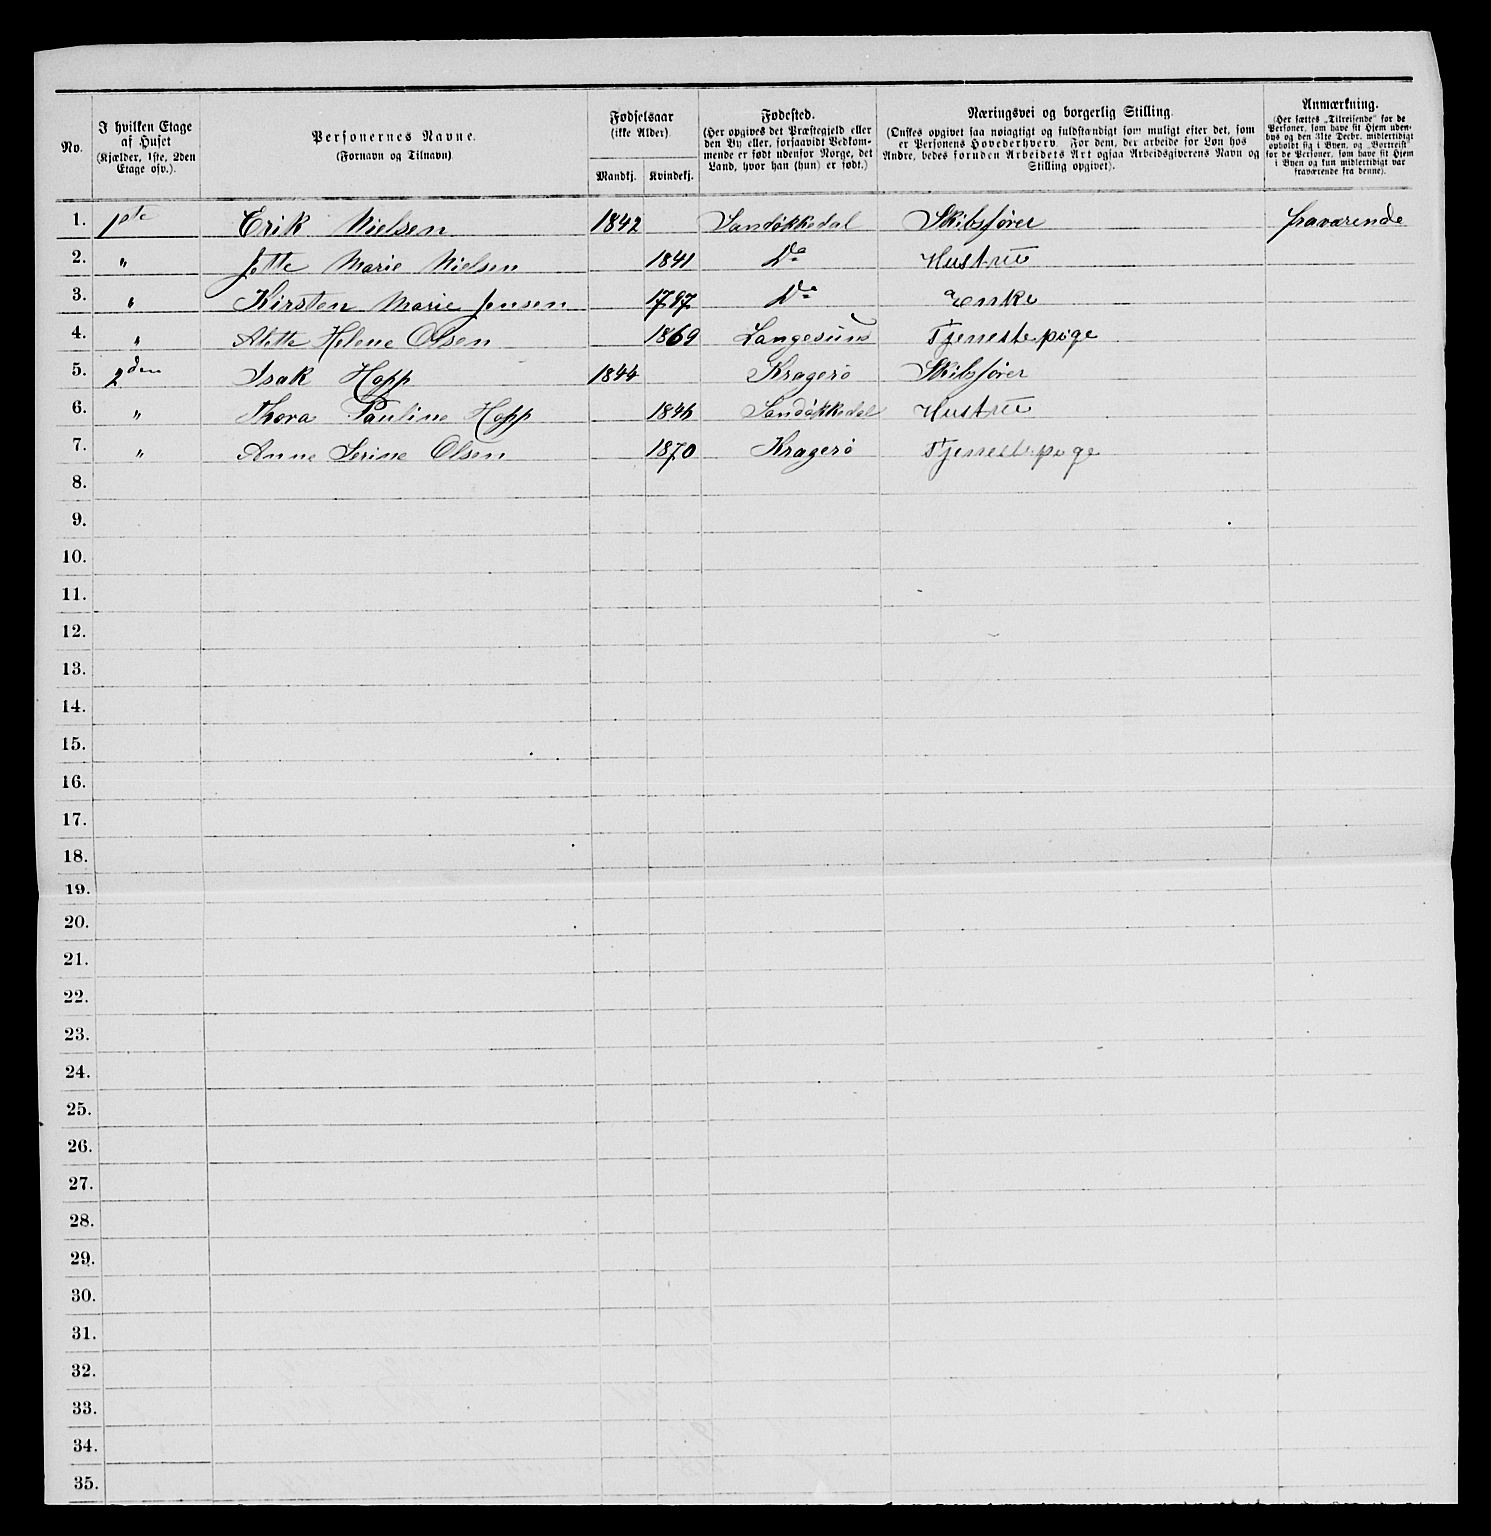 No. | I hvilken Etage af Huset (Kjælder, 1ste, 2den Etage osv.). | Personernes Navne. (Fornavn og Tilnavn) | Fødselsaar (ikke Alder). Mandkj. | Kvindekj. | Fødested. (Her opgives det Præstegjeld eller den By eller, forsaavidt Vedkommende er født udenfor Norge, det Land, hvor han (hun) er født.) | Næringsvei og borgerlig Stilling. (Ønskes opgivet saa nøiagtigt og fuldstændigt som muligt efter det, som er Personens Hovederhverv. For dem, der arbeide for Løn hos Andre, bedes foruden Arbeidets Art ogsaa Arbeidsgiverens Navn og Stilling opgivet). | Anmærkning. (Her sættes „Tilreisende“ for de Personer, som have sit Hjem udenbys og den 31te Decbr. midlertidigt opholdt sig i Byen, og „Bortreist“ for de Personer, som have sit Hjem i Byen og kun midlertidigt var fraværende fra denne).
1. 1ste Erik Nielsen 1842 Sandøkkedal Skibsfører fraværende
2. " Jette Marie Nielsen 1841 Do Hustru
3. " Kirsten Marie Jensen 1797 Do Enke
4. " Alette Helene Olsen 1869 Langesund Tjenestepige
5. 2den Isak Hopp 1844 Kragerø Skibsfører
6. " Thora Pauline Hopp Sandøkkedal Hustru
7. " Anne Serine Olsen 1870 Kragerø Tjenestepige
8.
9.
10.
11.
12.
13.
14.
15.
16.
17.
18.
19.
20.
21.
22.
23.
24.
25.
26.
27.
28.
29.
30.
31.
32.
33.
34.
35.